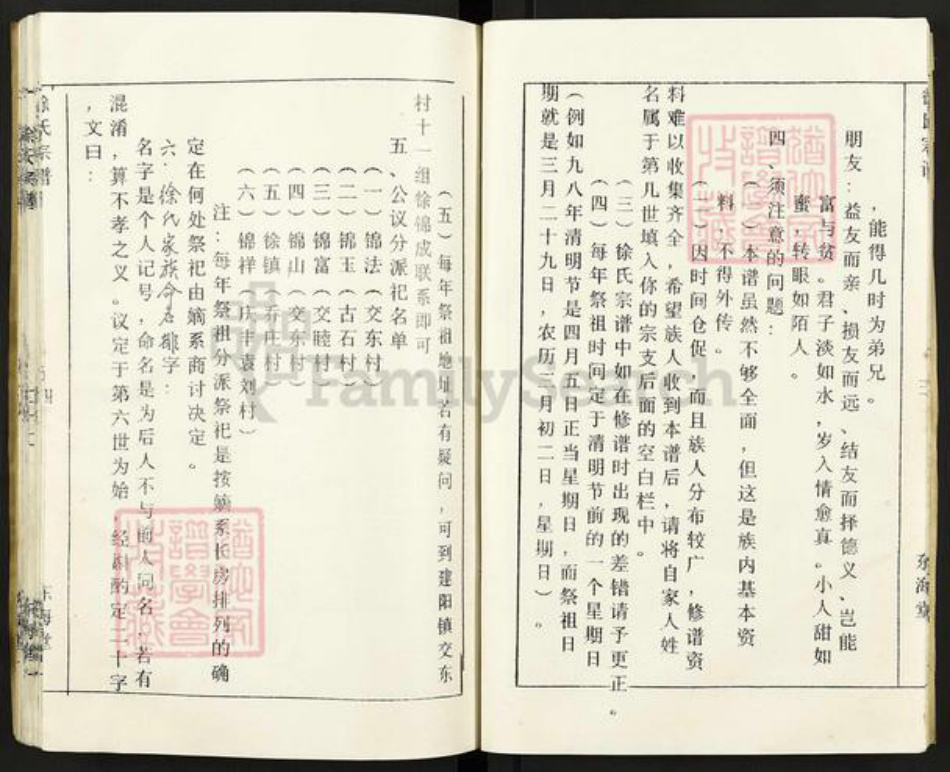 ，能得几时为弟兄。
朋友：益友而亲、损友而远、结友而择德义、岂能
富与贫。君子淡如水，岁入情愈真。小人甜如
蜜，转眼如陌人。
四、须注意的问题：
（一）本谱虽然不够全面，但这是族内基本资
料，不得外传。
（二）因时间仓促，而且族人分布较广，修谱资
料难以收集齐全，希望族人收到本谱后，请将自家人姓
名属于第几世填入你的宗支后面的空白栏中。
（三）徐氏宗谱中如在修谱时出现的差错请予更正。
（四）每年祭祖时间定于清明节前的一个星期日
（例如九八年清明节是四月五日正当星期日，而祭祖日
期就是三月二十九日，农历三月初二日，星期日）。
东海堂
（五）每年祭祖地址若有疑问，可到建阳镇交东
村十一组徐锦成联系即可
五、公议分派祀名单
（一）锦法（交东村）
（二）锦玉（古石村）
（三）锦富（交睦村）
（四）锦山（交东村）
（五）徐镇（乔庄村）
（六）锦祥（庆丰袁刘村）
注：每年祭祖分派祭祀是按嫡系长房排列的确
定在何处祭祀由嫡系商讨决定。
六、徐氏家族命名排字：
名字是个人记号，命名是为后人不与前人同名、若有
混淆，算不孝之义。议定于第六世为始，经斟酌定二十字
，文曰：
徐氏宗谱
东海堂
FamilySearch